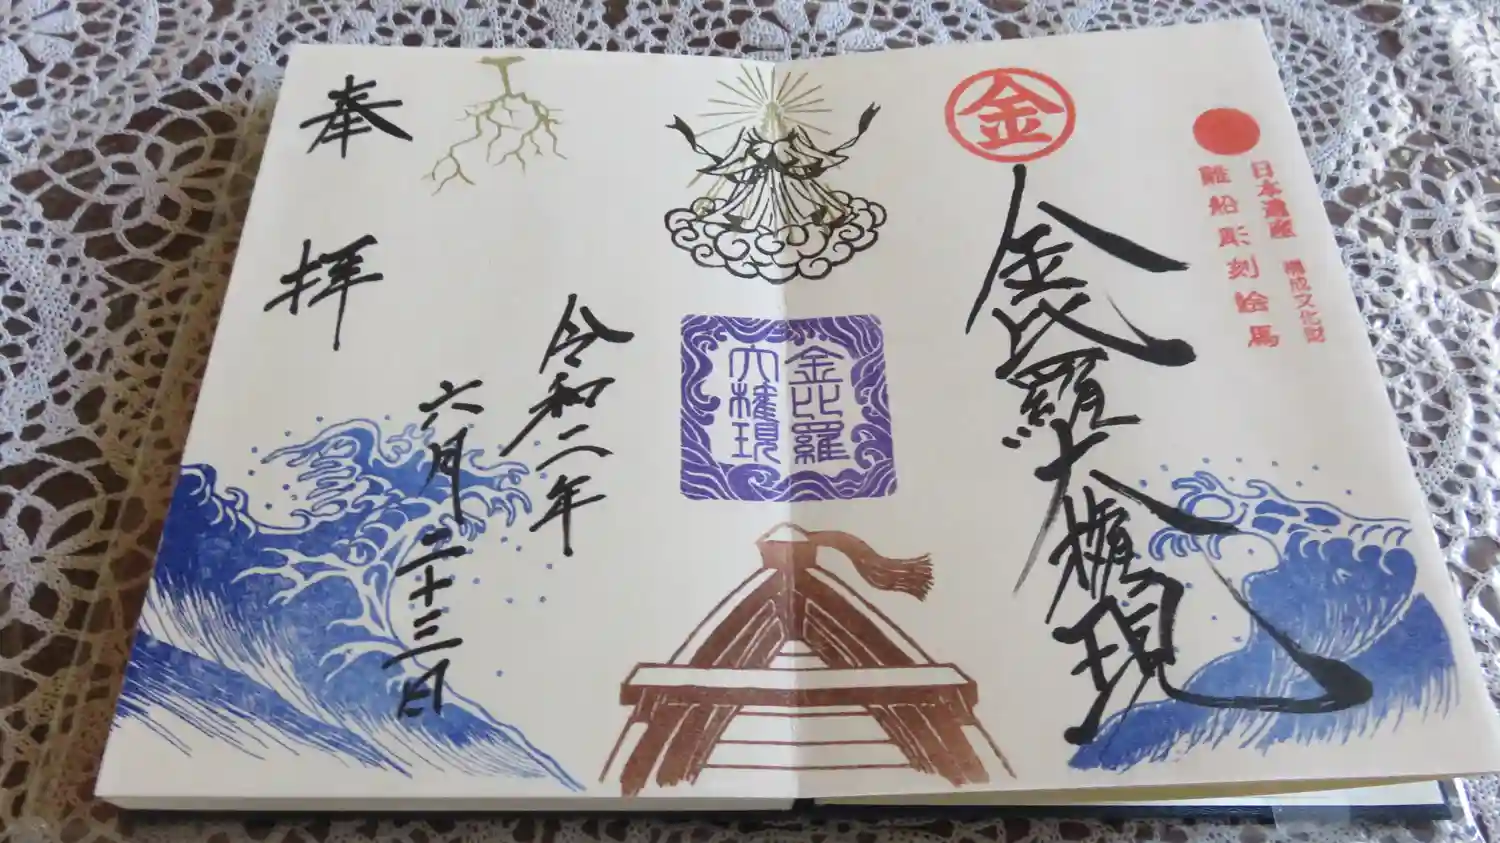 日本遺産
構成文化財
難船彫刻絵馬
金
金比羅大権現
金比羅
大権現
令和二年
六月二十三日
奉拝